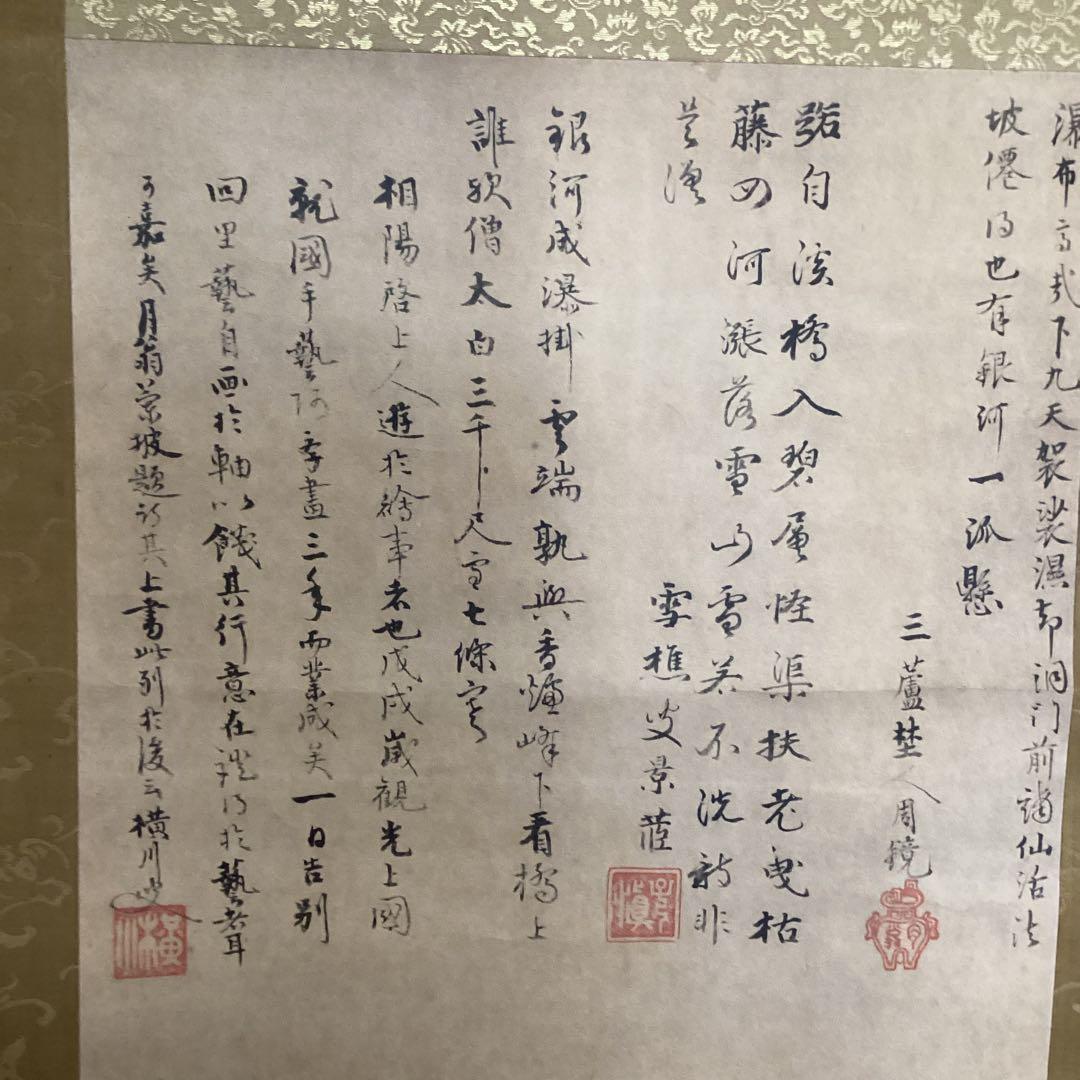 瀑布高哉下九天袈裟濕却洞門前謫仙活法
坡僊得也有銀河一派懸
三蘆埜人周鏡
路自溪橋入碧層怪渠扶老曳枯
藤四河漲落雪山雪若不洗詩非
是僧
雪樵叟景茝
銀河成瀑掛雲端孰與香爐峰下看橋上
誰欤僧太白三千尺雪七條寒
相陽啓上人遊於繪事者也戊戌歲觀光上國
就國手藝阿学畫三年而業成矣一日告別
回里藝自画於軸以餞其行意在於藝者耳
可嘉矣月翁蘭坡題詩其上書此列於後云橫川叟
橫川